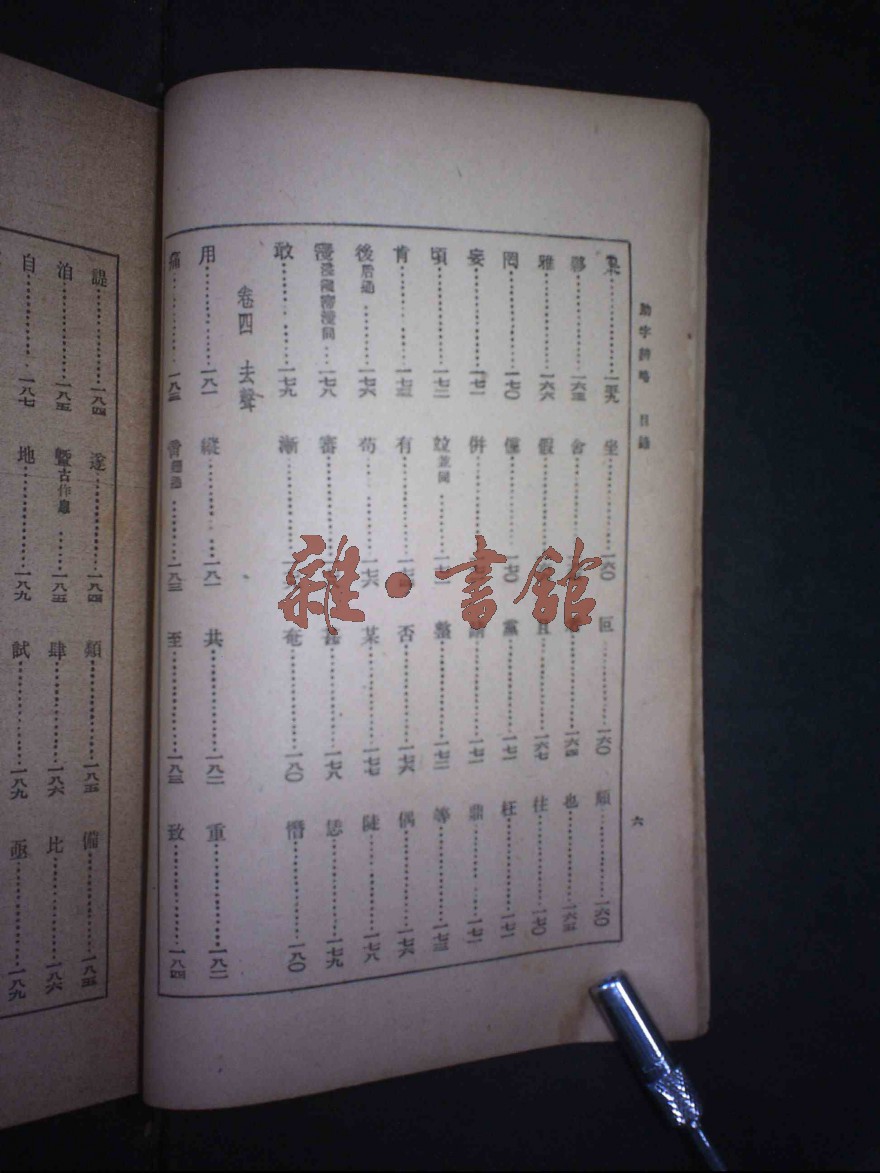 助字辨略 目錄
六
一五九 坐 一六〇 叵 一六〇 頗 一六〇
夥 一六三 舍 一六四 也 一六五
雅 一六六 假 且 一六七 往 一七〇
罔 一七〇 儻 一七〇 黨 一七一 枉 一七一
妄 一七一 併 一七一 鼎 一七一
頃 一七二 竝並同 整 一七二 等 一七三
肯 一七三 有 否 一七六 偶 一七六
後后通 一七六 苟 一七六 某 一七七 陡 一七八
寖 一七八 審 甚 一七八 恁 一七九
敢 一七九 漸 奄 一八〇 憯 一八〇
卷四 去聲
用 一八一 縱 一八一 共 一八二 重 一八二
痛 一八三 一八三 至 一八三 致 一八四
諟 一八四 遂 一八四 類 一八五 備 一八五
洎 一八五 暨古作臮 一八五 肆 一八六 比 一八六
自 一八七 地 一八九 試 一八九 亟 一八九
雜·書館